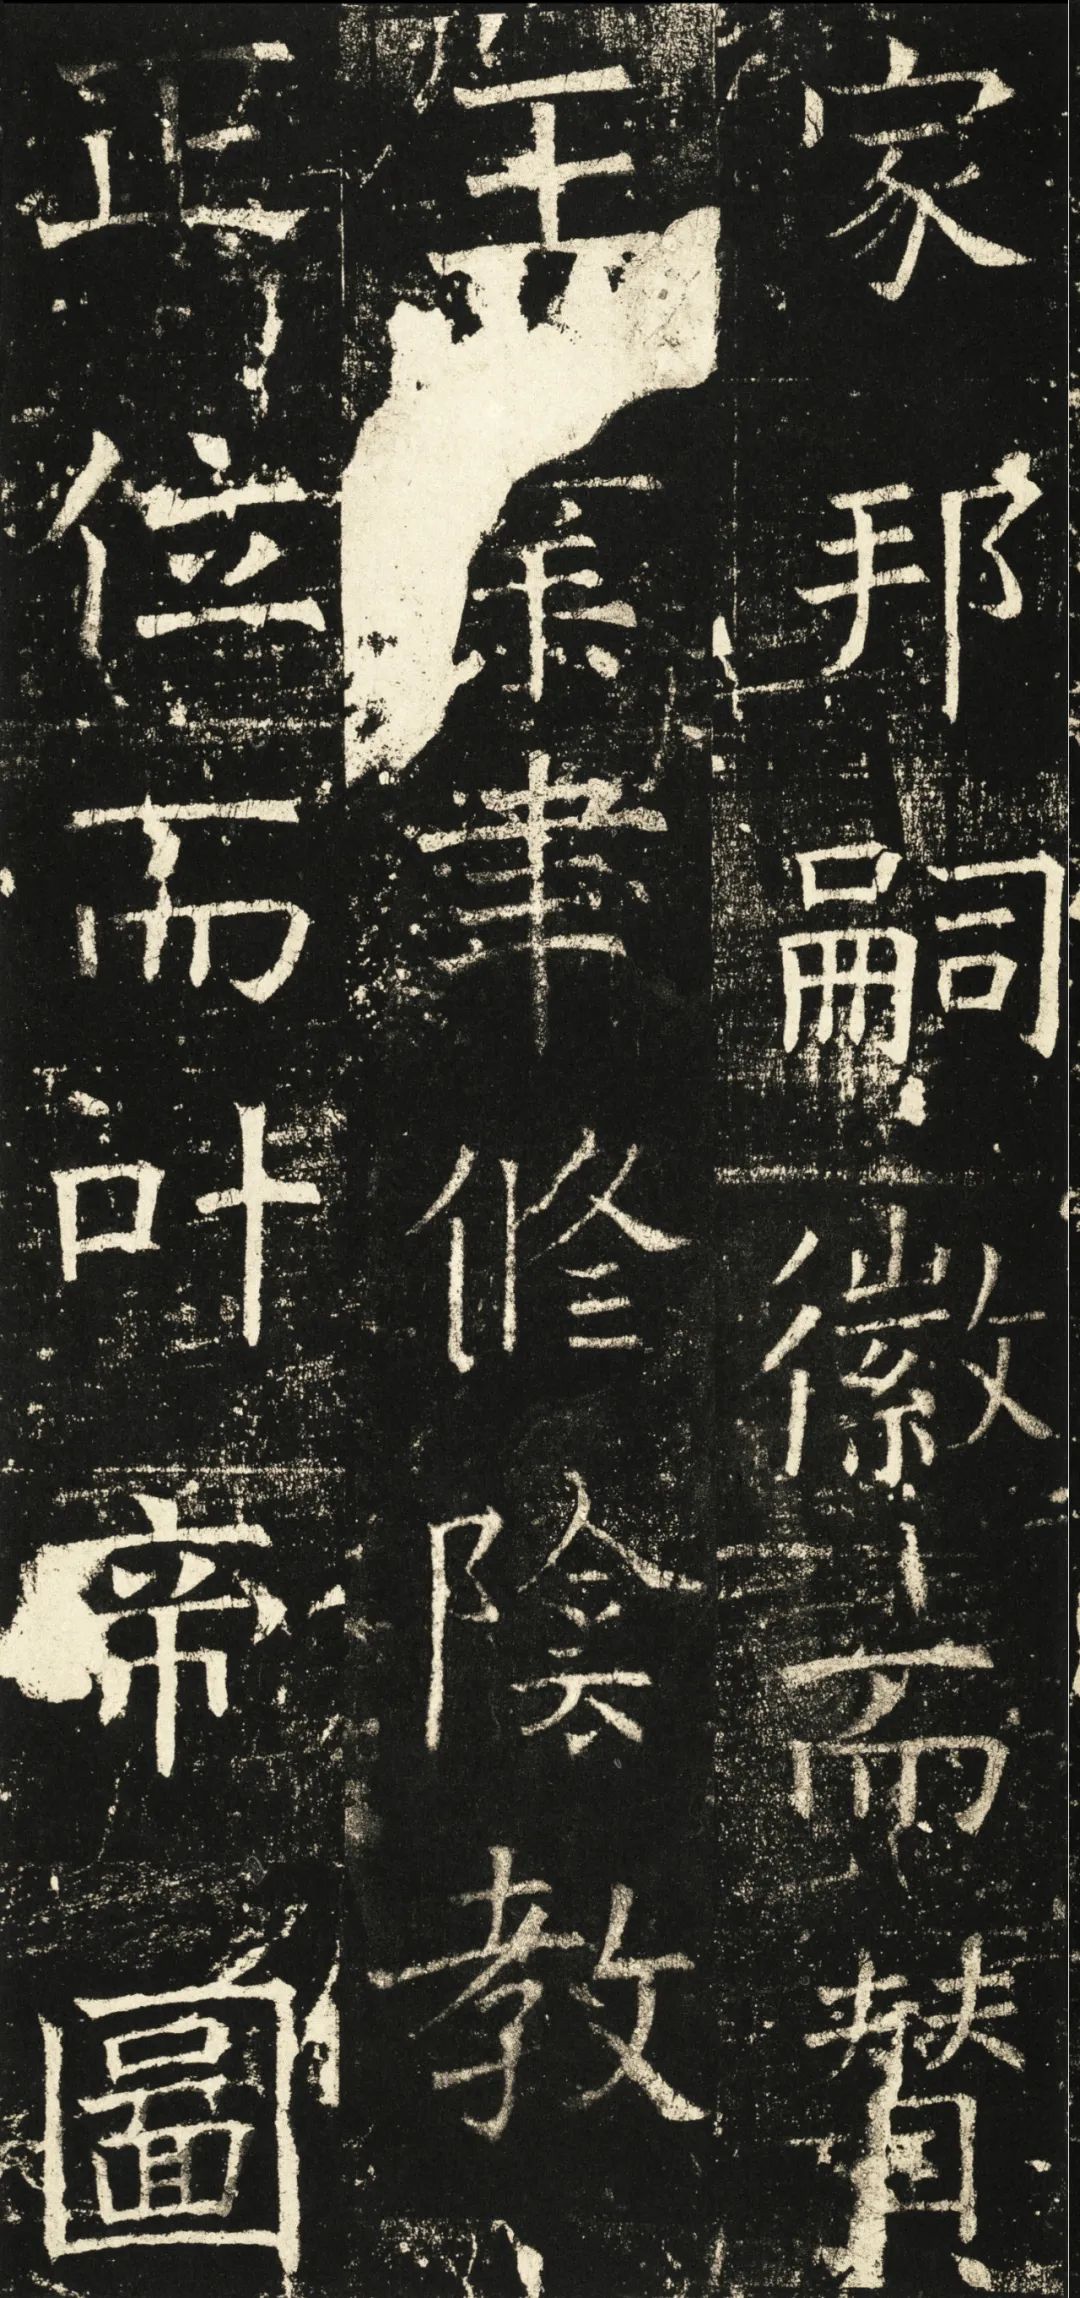 家邦嗣徽而贊
王業聿修陰教
正位而叶帝圖